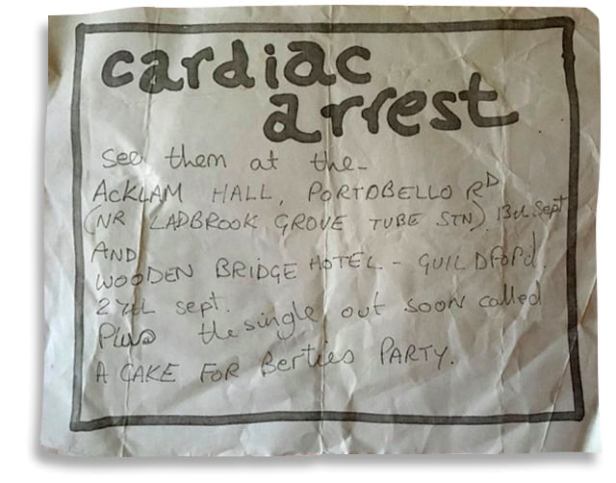 cardiac
arrest
see them at the-
ACKLAM HALL, PORTOBELLO RD
(NR LADBROOK GROVE TUBE STN). 13th Sept
AND
WOODEN BRIDGE HOTEL - GUILDFORD.
27th sept.
Plus the single out soon called
A CAKE FOR Berties PARTY.